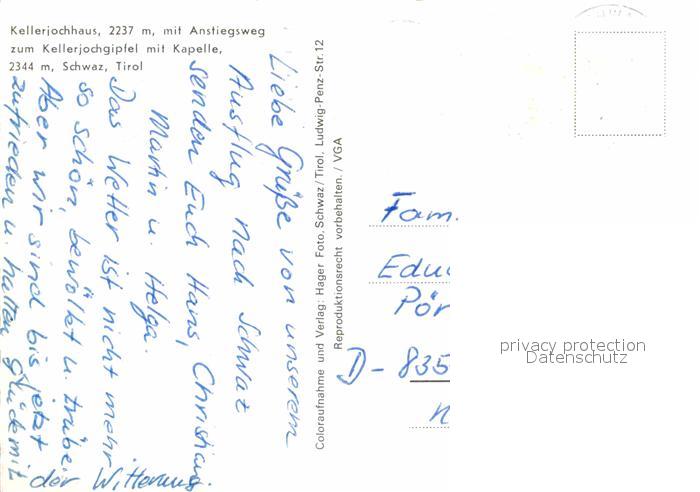 Kellerjochhaus, 2237 m, mit Anstiegsweg
zum Kellerjochgipfel mit Kapelle,
2344 m, Schwaz, Tirol
Liebe Grüße von unserem
Ausflug nach Schwaz
senden Euch Hans, Christian,
Martin u. Helga.
Das Wetter ist nicht mehr
so schön, bewölkt u. trübe.
Aber wir sind bis jetzt
zufrieden u. hatten Glück mit
der Witterung.
Coloraufnahme und Verlag: Hager Foto, Schwaz/Tirol, Ludwig-Penz-Str. 12
Reproduktionsrecht vorbehalten. / VGA
Fam.
Edu
Pör
D-835
privacy protection
Datenschutz